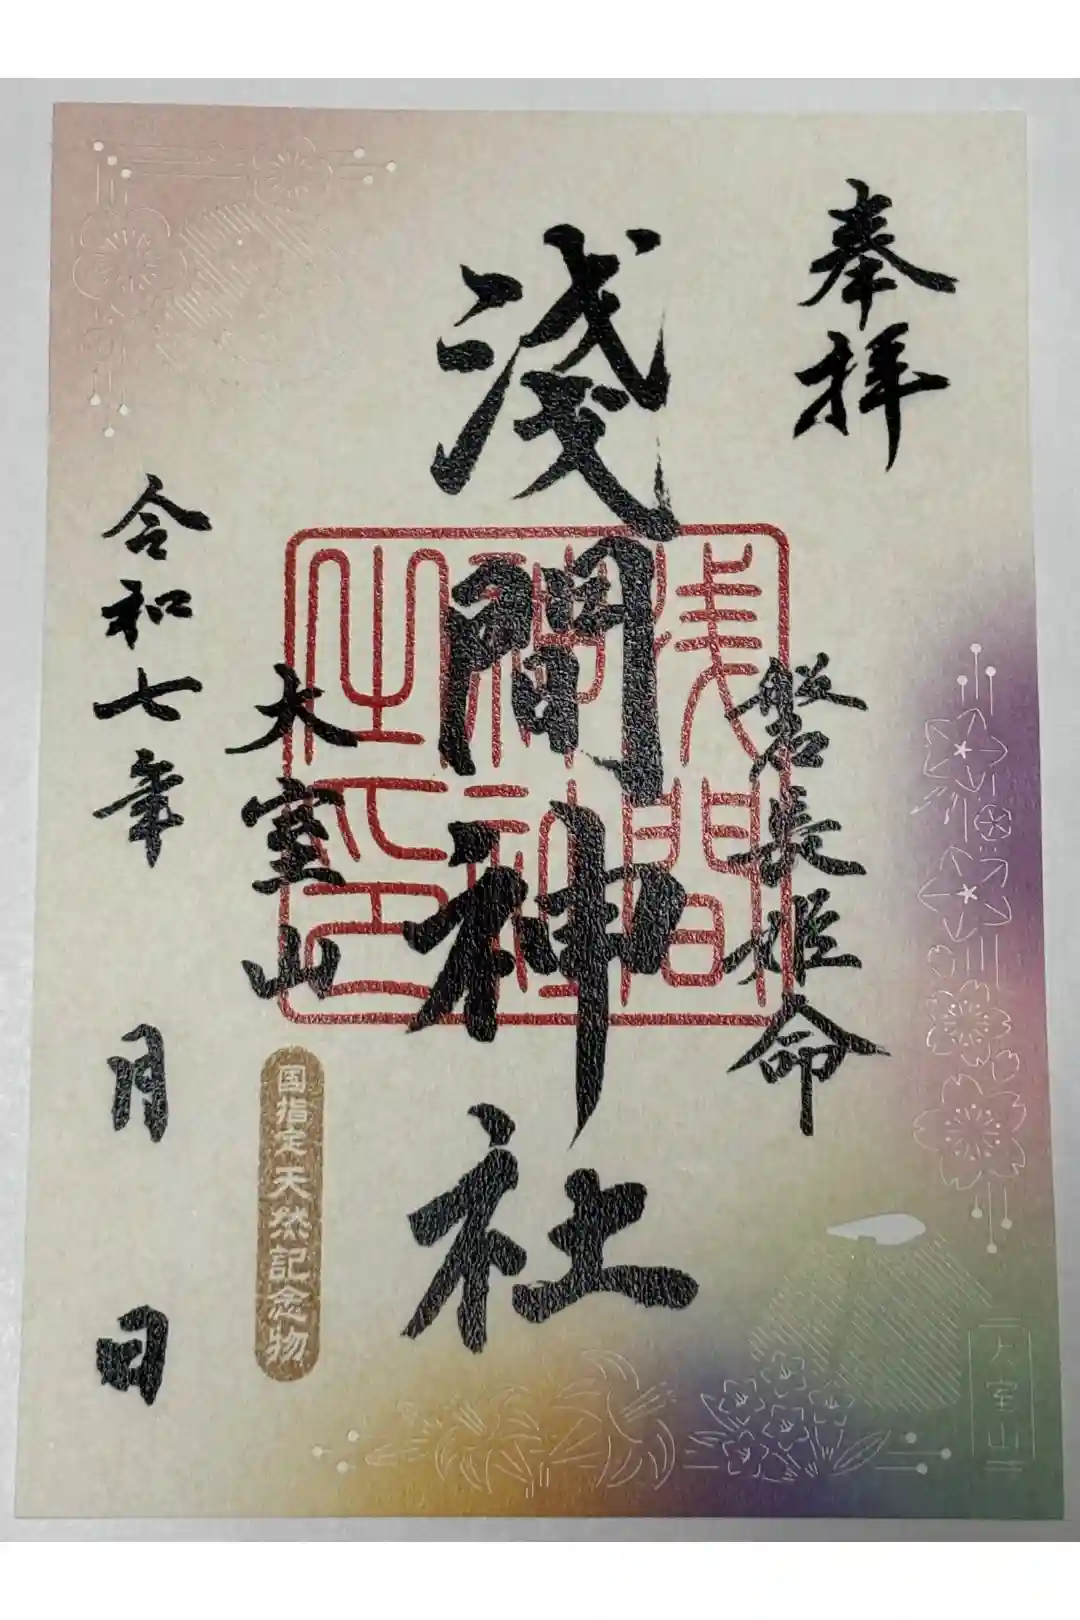 奉拝
磐長姫命
浅間神社
浅間
神社
之印
大室山
国指定天然記念物
令和七年 月 日
大室山